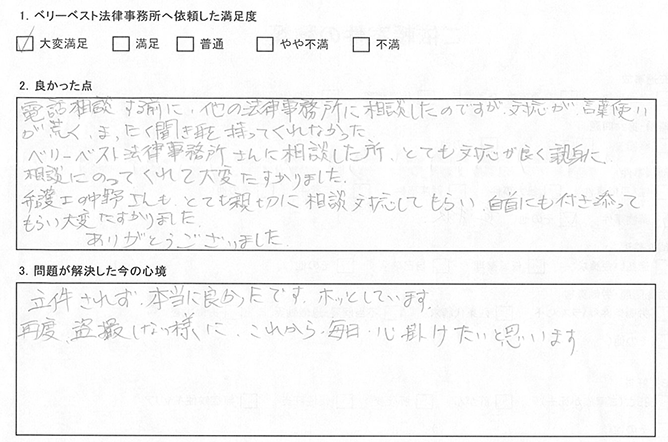 1. ベリーベスト法律事務所へ依頼した満足度
大変満足 満足 普通 やや不満 不満
2. 良かった点
電話相談する前に、他の法律事務所に相談したのですが、対応が、言葉使い
が荒く、まったく聞き耳を持ってくれなかった
ベリーベスト法律事務所さんに相談した所、とても対応が良く親身に、
相談にのってくれて大変たすかりました。
弁護士の中野さんも、とても親切に相談対応してもらい、自首にも付き添って
もらい大変たすかりました。
ありがとうございました。
3. 問題が解決した今の心境
立件されず、本当に良かったです。ホッとしています。
再度、盗撮しない様に、これから、毎日、心掛けたいと思います